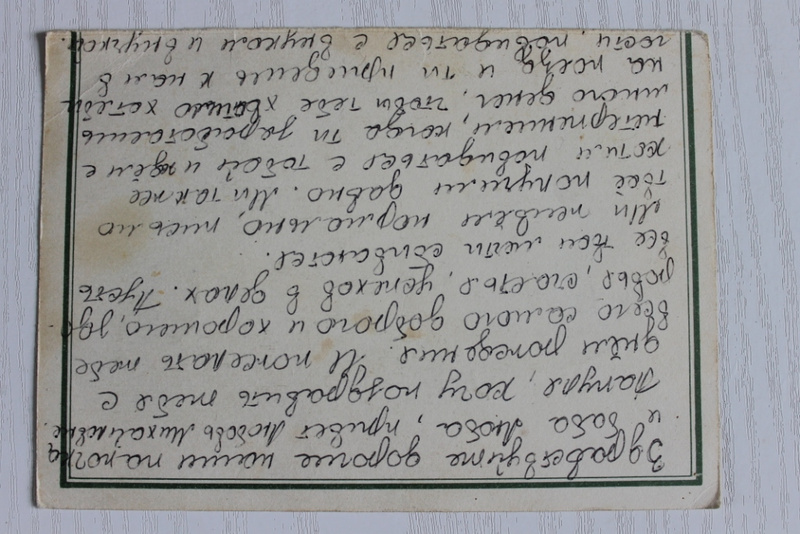 Здравствуйте дорогие наши папочка
и баба Люба, привет Любовь Михайловне
Папуля, хочу поздравить тебя с
днём рождения. И пожелать тебе
всего самого доброго и хорошего, здо
ровья, счастья, успехов в делах. Пусть
все твои мечты сбиваются.
Мы живём нормально, письмо
твоё получили давно. Мы тоже
хотим повидаться с тобой и ждём с
нетерпением, когда ты заработаешь
много денег, чтобы тебе хватило хотябы
на поезд и ты приедешь к нам в
гости, повидаться с внуком и внучкой.